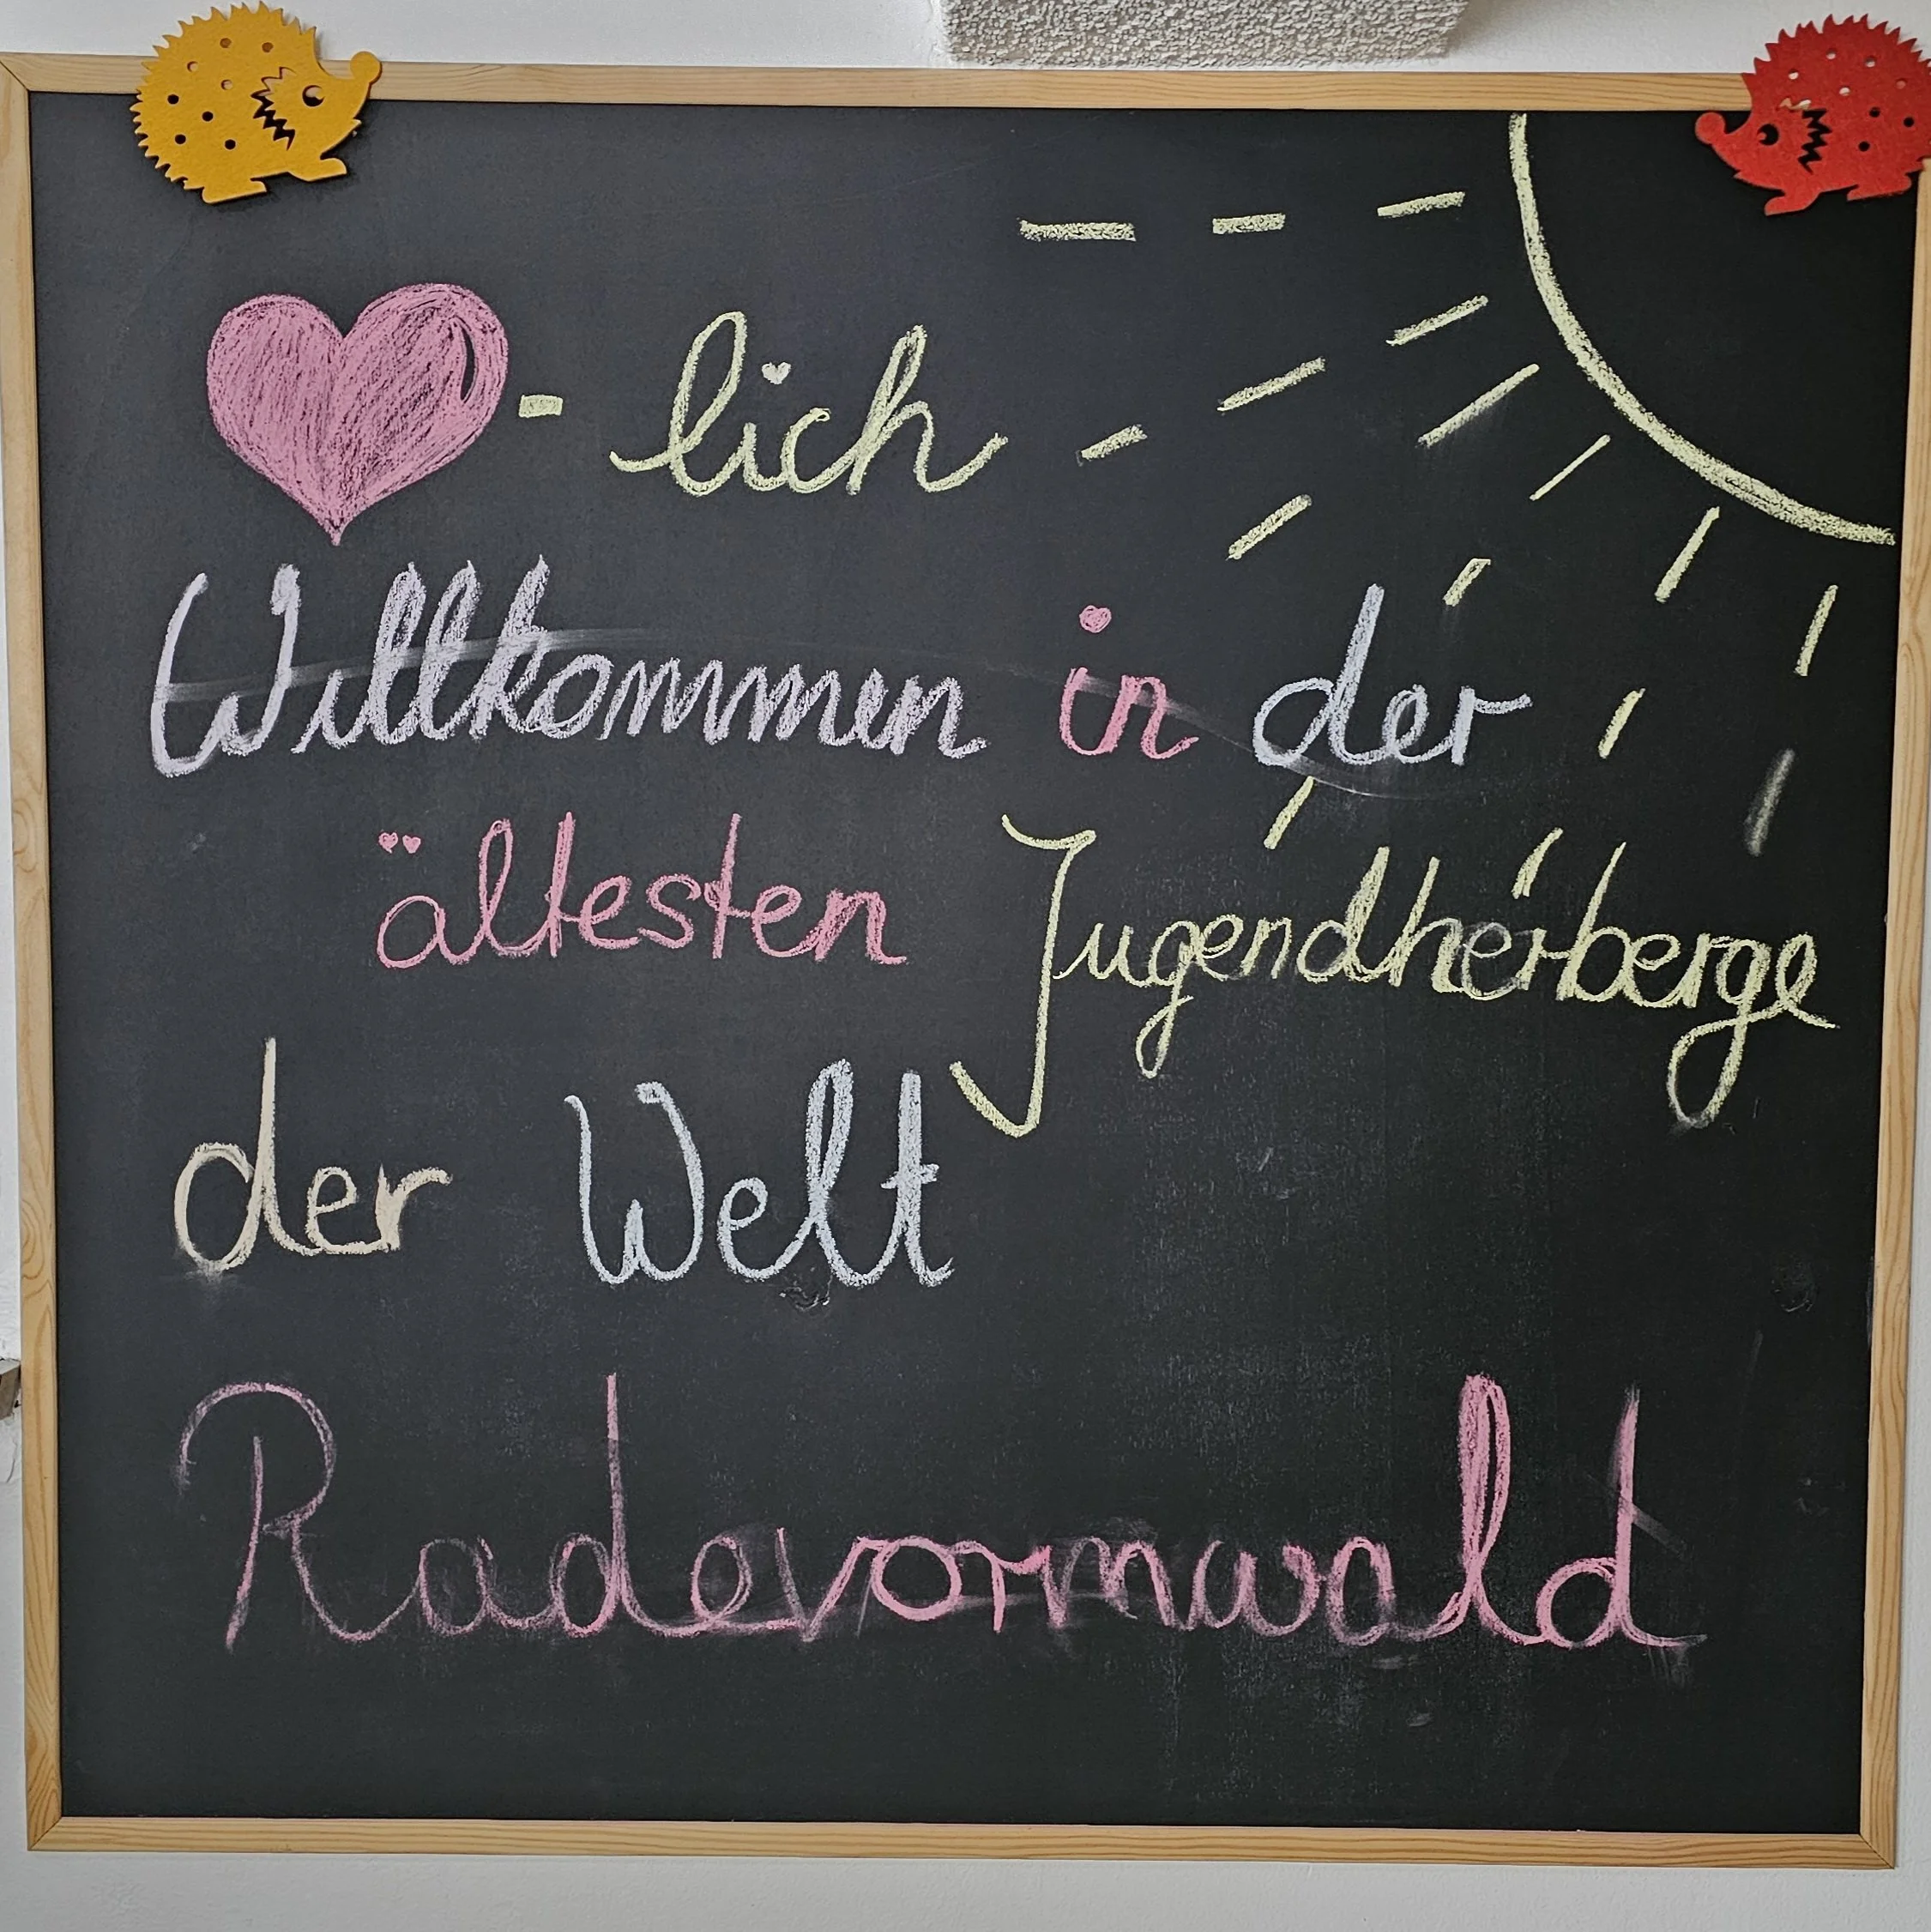 - lich
Willkommen in der
ältesten Jugendherberge
der Welt
Radevormwald